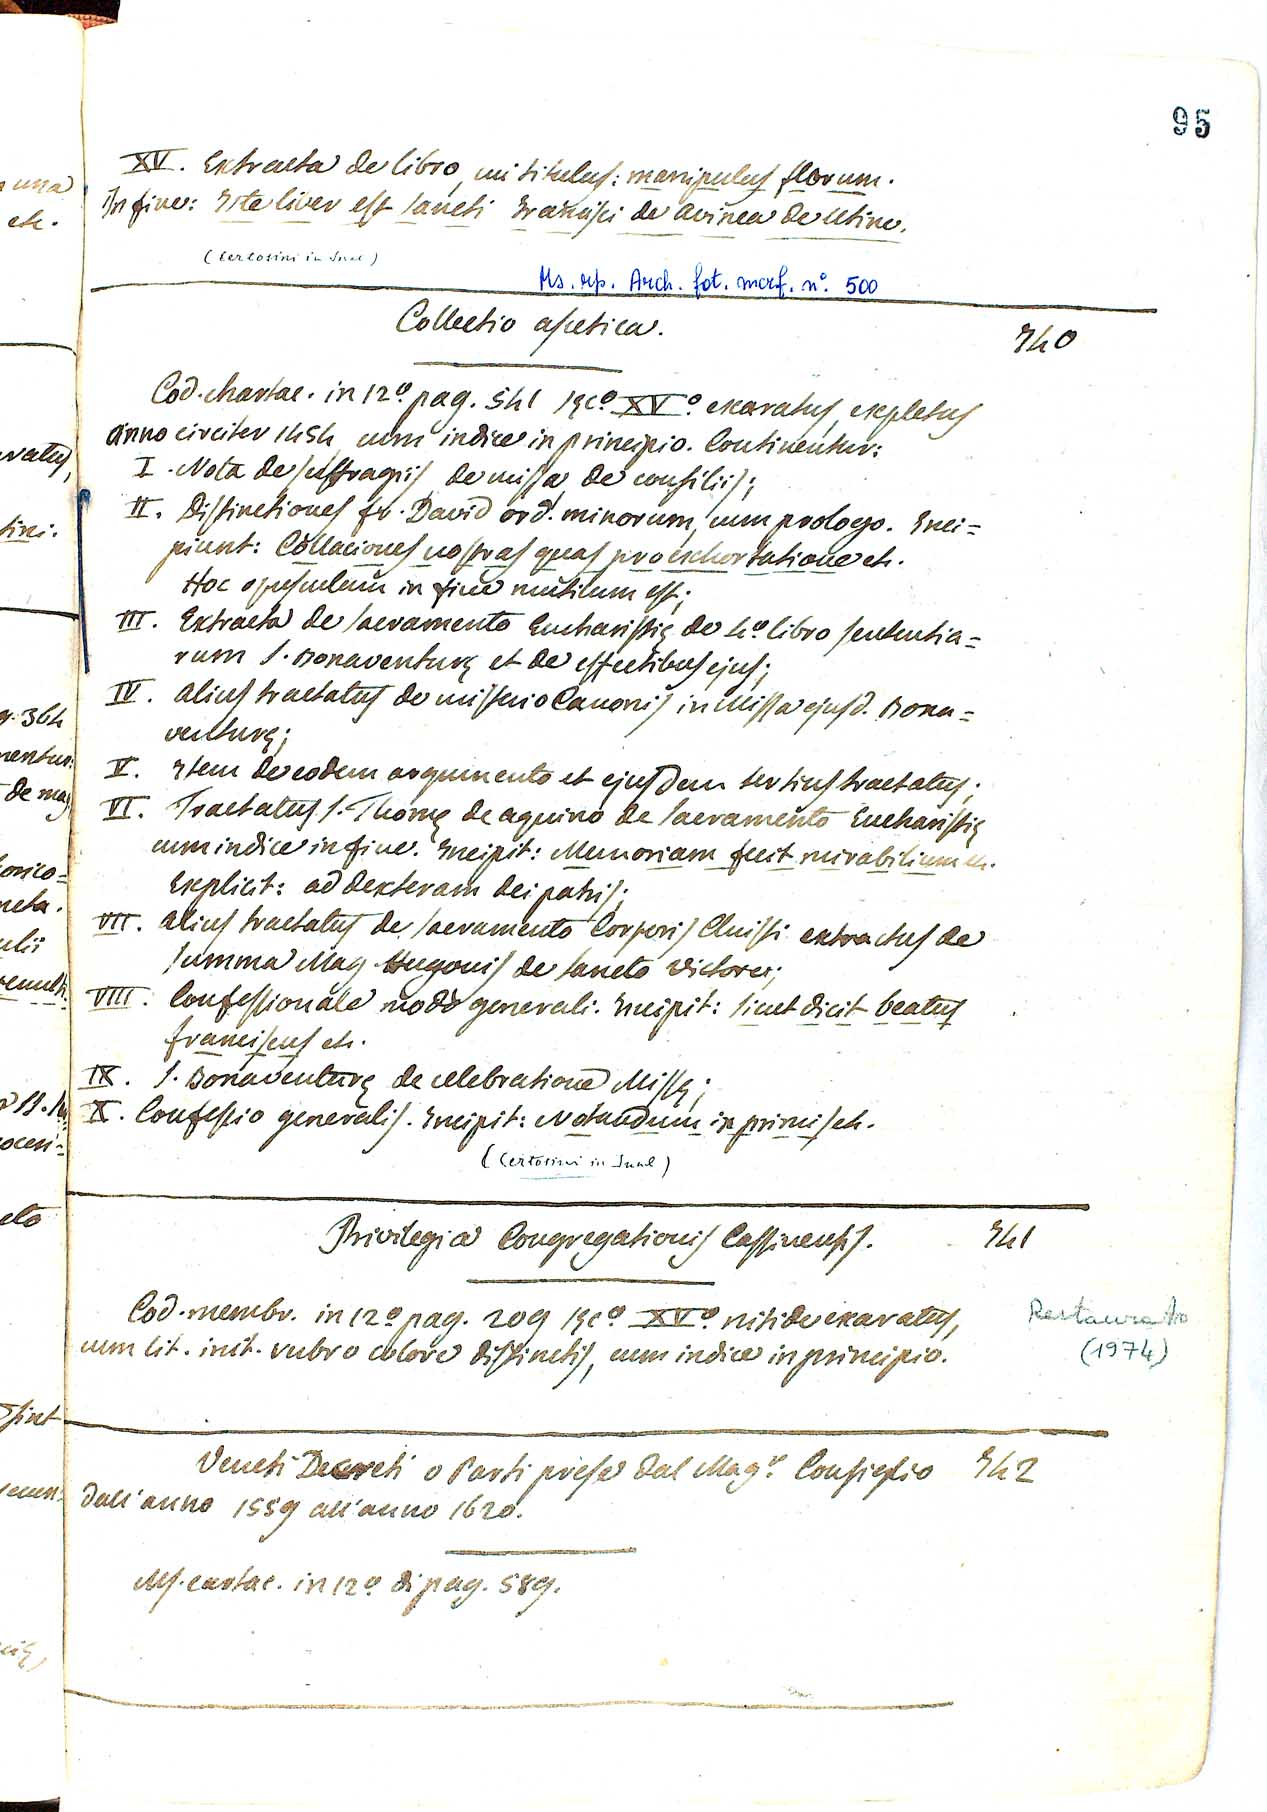 95
XV. Extracta de libro, cui titulus: manipulus florum.
In fine: Iste liver est sancti Francisci de Avinea de Utino.
(Certosini in Insul)
Ms. rip. Arch. fot. morf. n°. 500
Collectio ascetica. 340
Cod. chartac. in 12º pag. 541 sęcº XVº exaratus, expletus
anno circiter 1454 cum indice in principio. Continentur:
I. Nota de suffragiis de missa de consiliis;
II. Distinctiones fr. David ord. minorum, cum prologo. Inci=
piunt: Collaciones nostras quas pro exhortatione etc.
Hoc opusculum in fine mutilum est;
III. Extracta de sacramento Eucharistię de 4º libro sententia=
rum S. Bonaventurę et de effectibus ejus;
IV. Alius tractatus de misterio Canonis in Missa ejusd. Bona=
venturę;
V. Item de eodem argumento et ejusdem tertius tractatus;
VI. Tractatus S. Thomę de Aquino de sacramento Eucharistię
cum indice in fine. Incipit: Memoriam fecit mirabilium etc.
Explicit: ad dexteram dei patris;
VII. Alius tractatus de sacramento Corporis Christi extractus de
summa Mag Hugonis de sancto Victore;
VIII. Confessionale modo generali. Incipit: Sicut dicit beatus
franciscus etc.
IX. S. Bonaventurę de celebratione Missę;
X. Confessio generalis. Incipit: Notandum in primis etc.
(Certosini in Insul)
Privilegia Congregationis Cassinensis. 341
Cod. membr. in 12º pag. 209 sęcº XVº nitide exaratus,
cum lit. init. rubro colore distinctis, cum indice in principio.
Restaurato
(1974)
Veneti Decreti o Parti prese dal Mag.r Consiglio 342
dall'anno 1559 all'anno 1620.
Ms. cartac. in 12º di pag. 589.